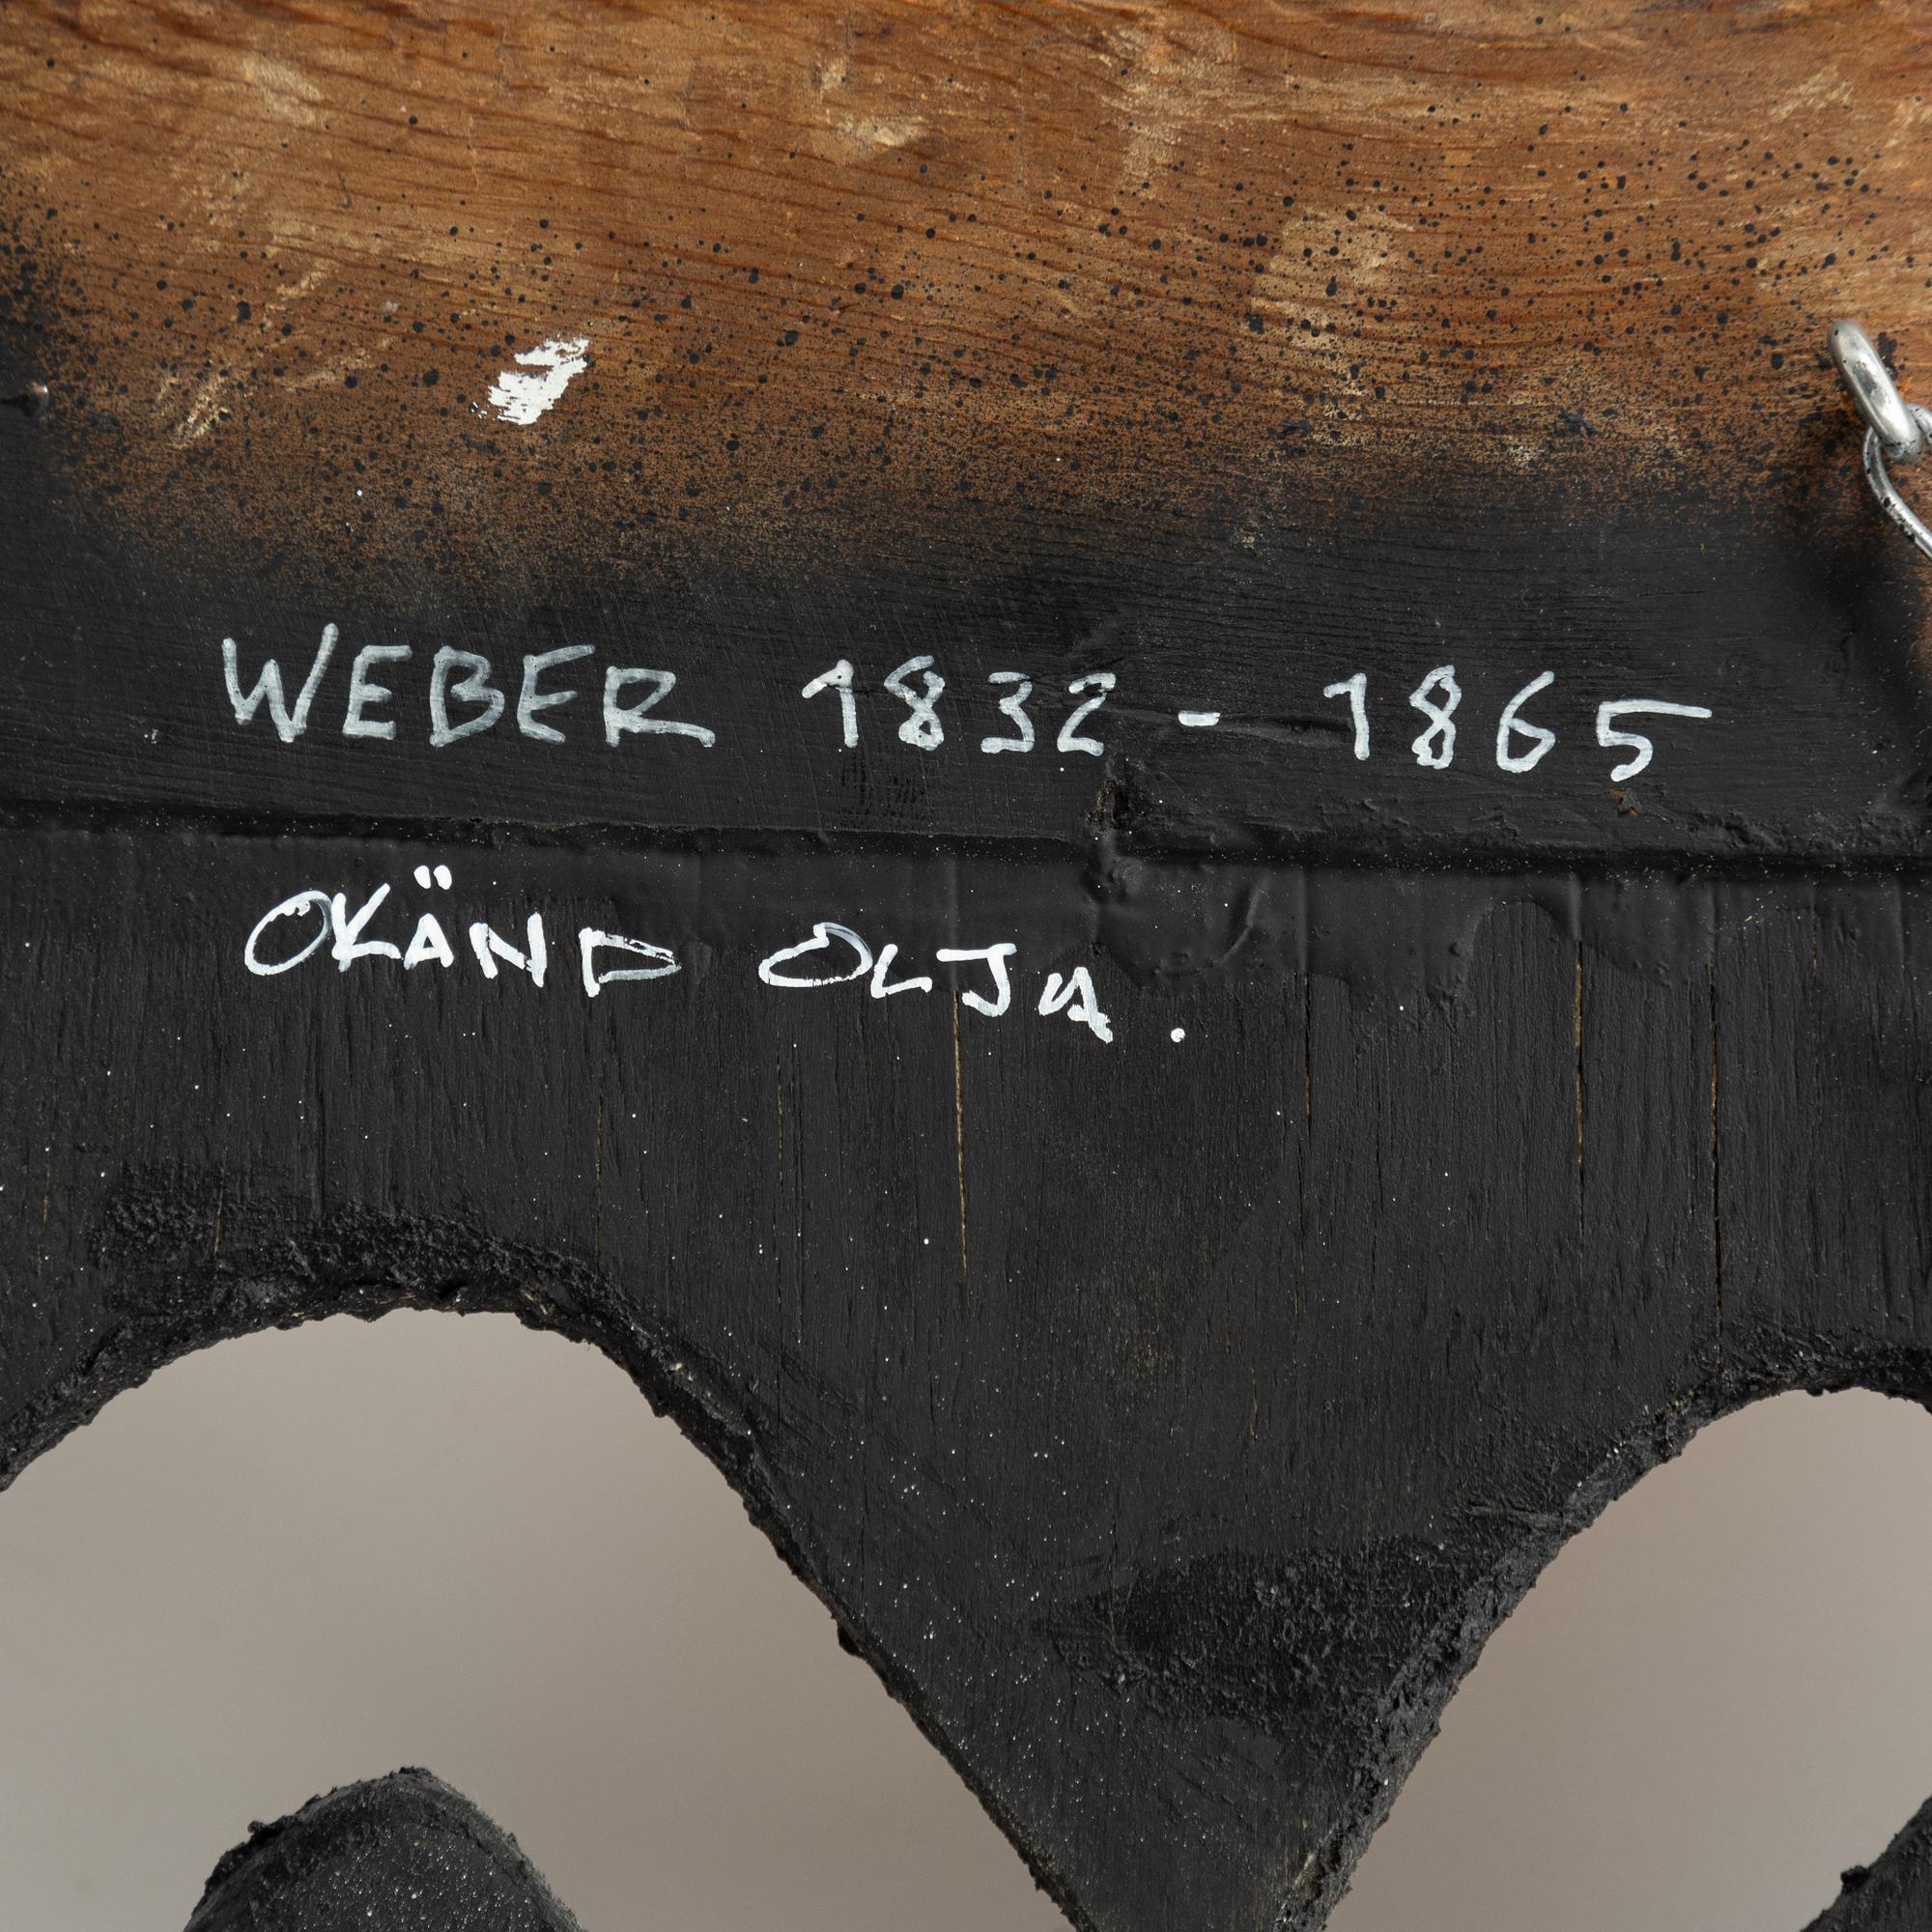 WEBER 1832 - 1865
OKÄND OLJA.